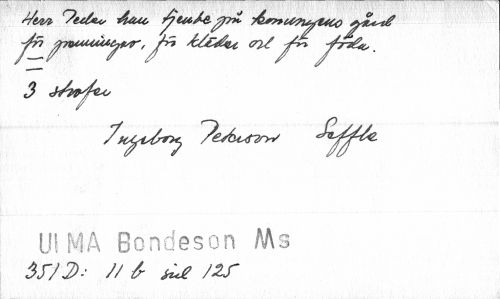 Herr Peder han tjente på konungens gård
för penningar, för kläder och för föda.
3 strofer
Ingeborg Peterson Seffle
ULMA Bondeson Ms
351 D: 11 b sid 125